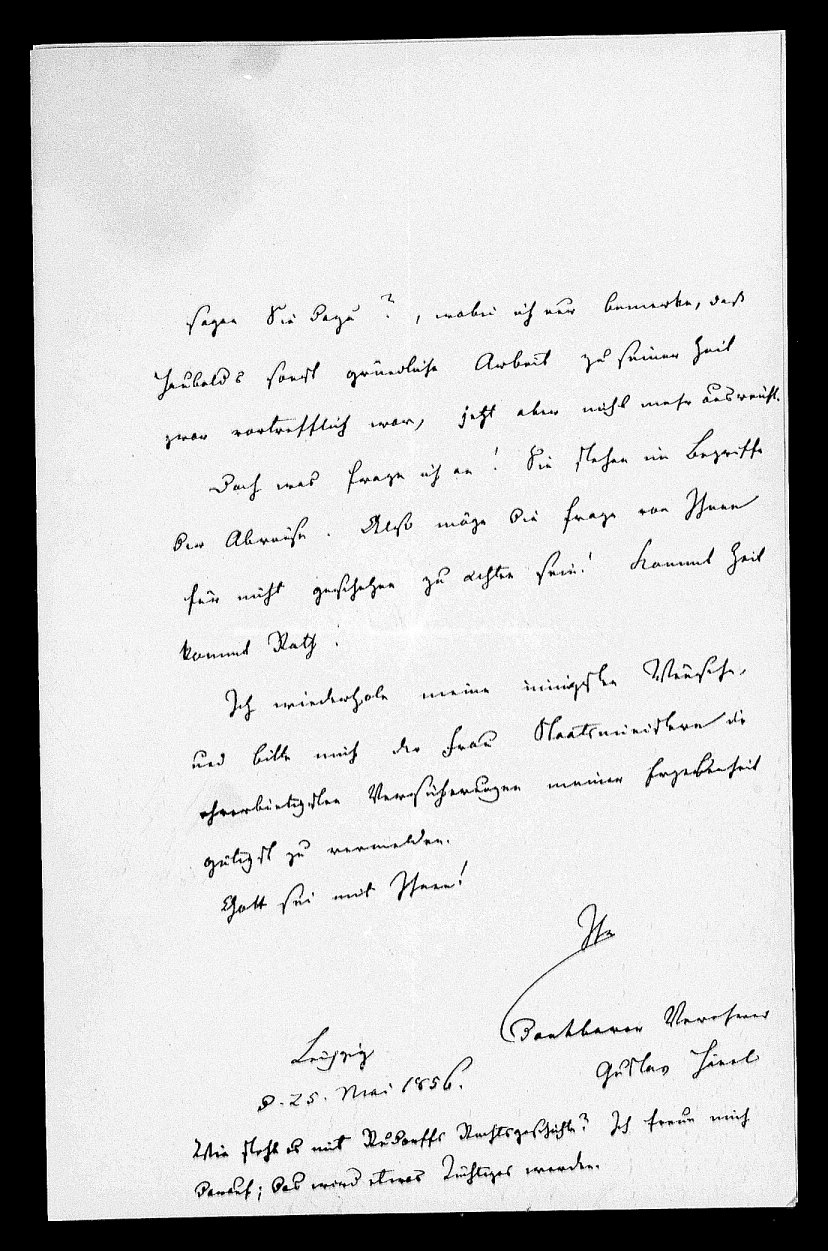 sagen Sie dazu?, wobei ich nur bemerke, daß
Haubolds sonst gründliche Arbeit zu seiner Zeit
zwar vortrefflich war, jetzt aber nicht mehr ausreicht.
Doch was frage ich an! Sie stehen im Begriffe
der Abreise. Also möge die Frage von Ihnen
für nicht geschehen zu achten sein! Kommt Zeit
kommt Rath.
Ich wiederhole meine innigsten Wünsche,
und bitte mich der Frau Staatsministerin die
ehrerbietigsten Versicherungen meiner Ergebenheit
gütigst zu vermelden.
Gott sei mit Ihnen!
Ihr
dankbarer Verehrer
Gustav Hänel
Leipzig
d. 25. Mai 1856.
Wie steht es mit Rudorffs Rechtsgeschichte? Ich freue mich
darauf; das wird etwas Tüchtiges werden.